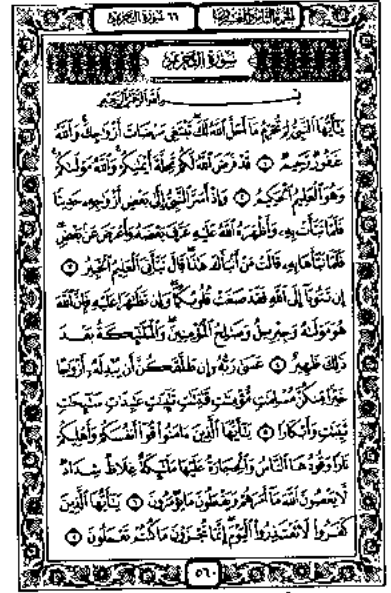 الجزء الثامن والعشرون ٦٦ سورة التحريم
سورة التحريم
بسم الله الرحمن الرحيم
يَٰٓأَيُّهَا ٱلنَّبِيُّ لِمَ تُحَرِّمُ مَآ أَحَلَّ ٱللَّهُ لَكَ تَبْتَغِي مَرْضَاتَ أَزْوَٰجِكَ وَٱللَّهُ
غَفُورٌ رَّحِيمٌ ١ قَدْ فَرَضَ ٱللَّهُ لَكُمْ تَحِلَّةَ أَيْمَٰنِكُمْ وَٱللَّهُ مَوْلَىٰكُمْ
وَهُوَ ٱلْعَلِيمُ ٱلْحَكِيمُ ٢ وَإِذْ أَسَرَّ ٱلنَّبِيُّ إِلَىٰ بَعْضِ أَزْوَٰجِهِۦ حَدِيثًا
فَلَمَّا نَبَّأَتْ بِهِۦ وَأَظْهَرَهُ ٱللَّهُ عَلَيْهِ عَرَّفَ بَعْضَهُۥ وَأَعْرَضَ عَنۢ بَعْضٍ
فَلَمَّا نَبَّأَهَا بِهِۦ قَالَتْ مَنْ أَنۢبَأَكَ هَٰذَا قَالَ نَبَّأَنِيَ ٱلْعَلِيمُ ٱلْخَبِيرُ ٣
إِن تَتُوبَآ إِلَى ٱللَّهِ فَقَدْ صَغَتْ قُلُوبُكُمَا وَإِن تَظَٰهَرَا عَلَيْهِ فَإِنَّ ٱللَّهَ
هُوَ مَوْلَىٰهُ وَجِبْرِيلُ وَصَٰلِحُ ٱلْمُؤْمِنِينَ وَٱلْمَلَٰٓئِكَةُ بَعْدَ
ذَٰلِكَ ظَهِيرٌ ٤ عَسَىٰ رَبُّهُۥٓ إِن طَلَّقَكُنَّ أَن يُبْدِلَهُۥٓ أَزْوَٰجًا
خَيْرًا مِّنكُنَّ مُسْلِمَٰتٍ مُّؤْمِنَٰتٍ قَٰنِتَٰتٍ تَٰٓئِبَٰتٍ عَٰبِدَٰتٍ سَٰٓئِحَٰتٍ
ثَيِّبَٰتٍ وَأَبْكَارًا ٥ يَٰٓأَيُّهَا ٱلَّذِينَ ءَامَنُوا۟ قُوٓا۟ أَنفُسَكُمْ وَأَهْلِيكُمْ
نَارًا وَقُودُهَا ٱلنَّاسُ وَٱلْحِجَارَةُ عَلَيْهَا مَلَٰٓئِكَةٌ غِلَاظٌ شِدَادٌ
لَّا يَعْصُونَ ٱللَّهَ مَآ أَمَرَهُمْ وَيَفْعَلُونَ مَا يُؤْمَرُونَ ٦ يَٰٓأَيُّهَا ٱلَّذِينَ
كَفَرُوا۟ لَا تَعْتَذِرُوا۟ ٱلْيَوْمَ إِنَّمَا تُجْزَوْنَ مَا كُنتُمْ تَعْمَلُونَ ٧
٥٦٠